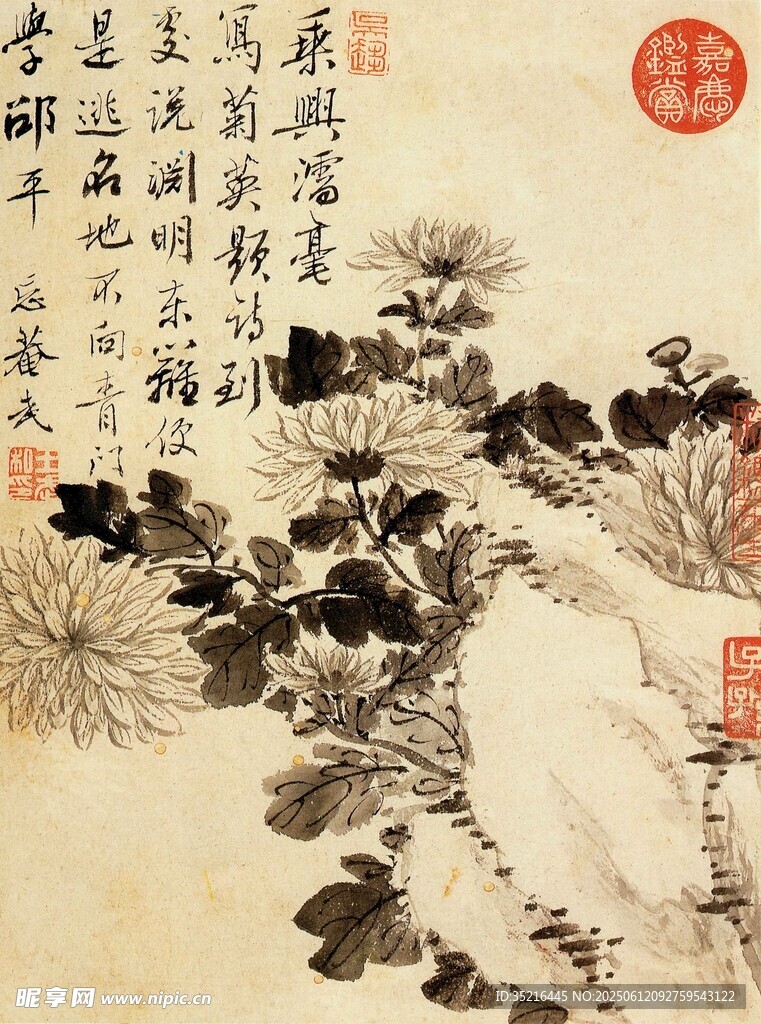 乘興濡毫
寫菊英題詩到
處說淵明東籬便
是逃名地不向青門
學邵平
忘菴武
嘉慶鑑賞
昵享网 www.nipic.cn
ID:35216445 NO:20250612092759543122